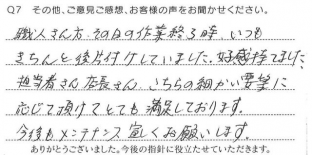 Q7 その他、ご意見ご感想、お客様の声をお聞かせください。
職人さん方、その日の作業終る時、いつも
きちんと後片付けしていました。好感持てました。
担当者さん、店長さん、こちらの細かい要望に
応じて頂けてとても満足しております。
今後もメンテナンス宜しくお願いします。
ありがとうございました。今後の指針に役立たせていただきます。